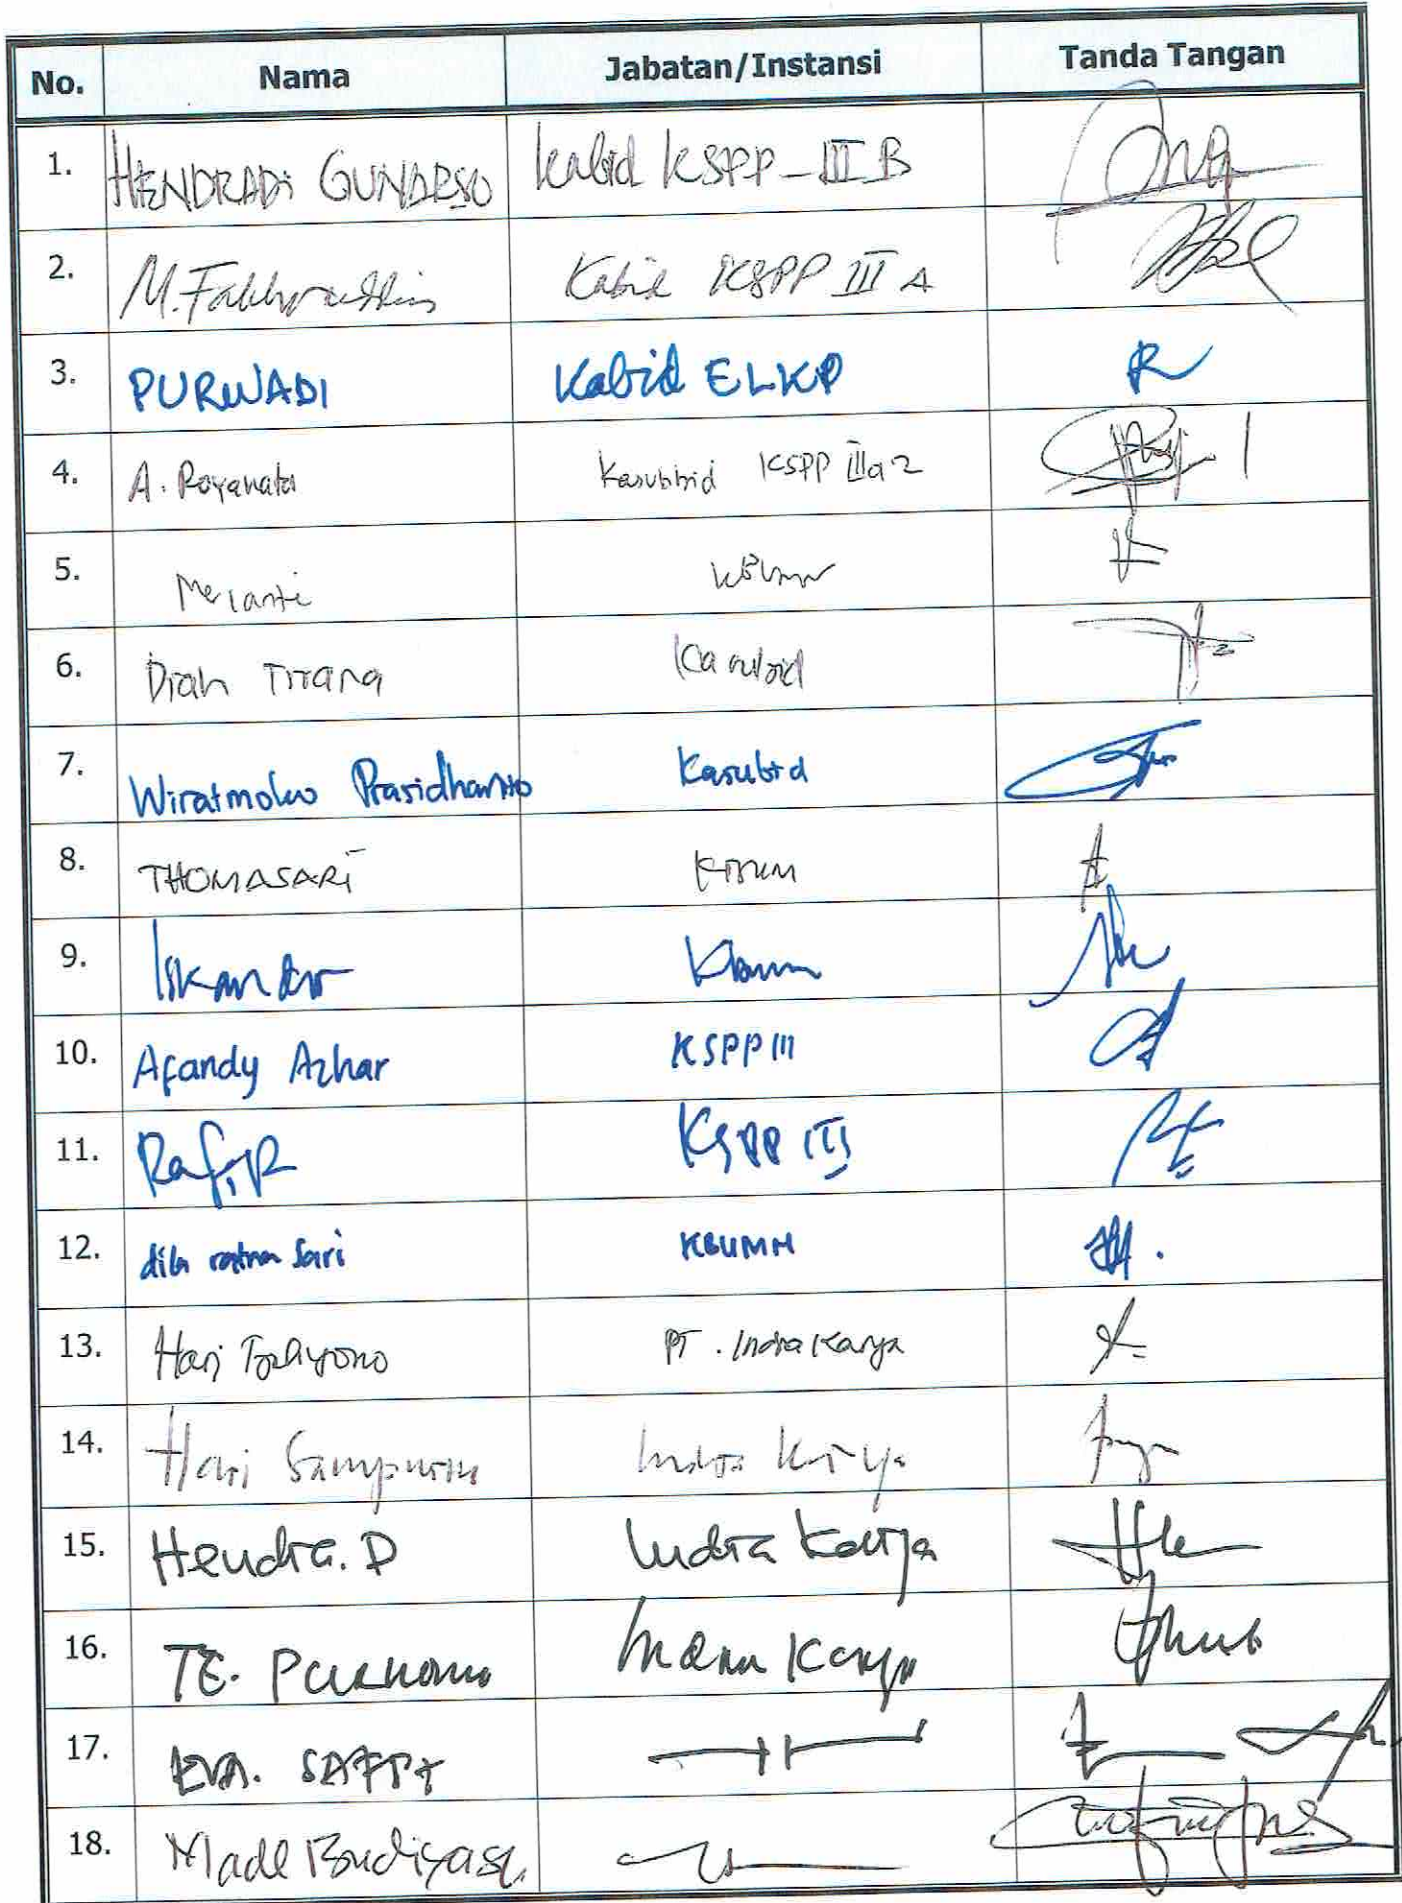 No. Nama Jabatan/Instansi Tanda Tangan
1. HENDRADi GUNARSO Kabid KSPP-III B
2. M. Fakhruddin Kabid KSPP III A
3. PURWADI Kabid ELKP
4. A. Royanata Kasubbid KSPP IIIa2
5. Meranti
6. Diah Tirana Kasubid
7. Wiratmoko Prasidhanto Kasubid
8. THOMASARI
9. Iskandar
10. Afandy Azhar KSPP III
11. Rafi R KSPP III
12. dila ratna sari KBUMN
13. Hari PT. Indra Karya
14. Hari Sampurno Indra Karya
15. Hendra. D Indra Karya
16. TE. Purnomo Indra Karya
17. EVA.
18. Made